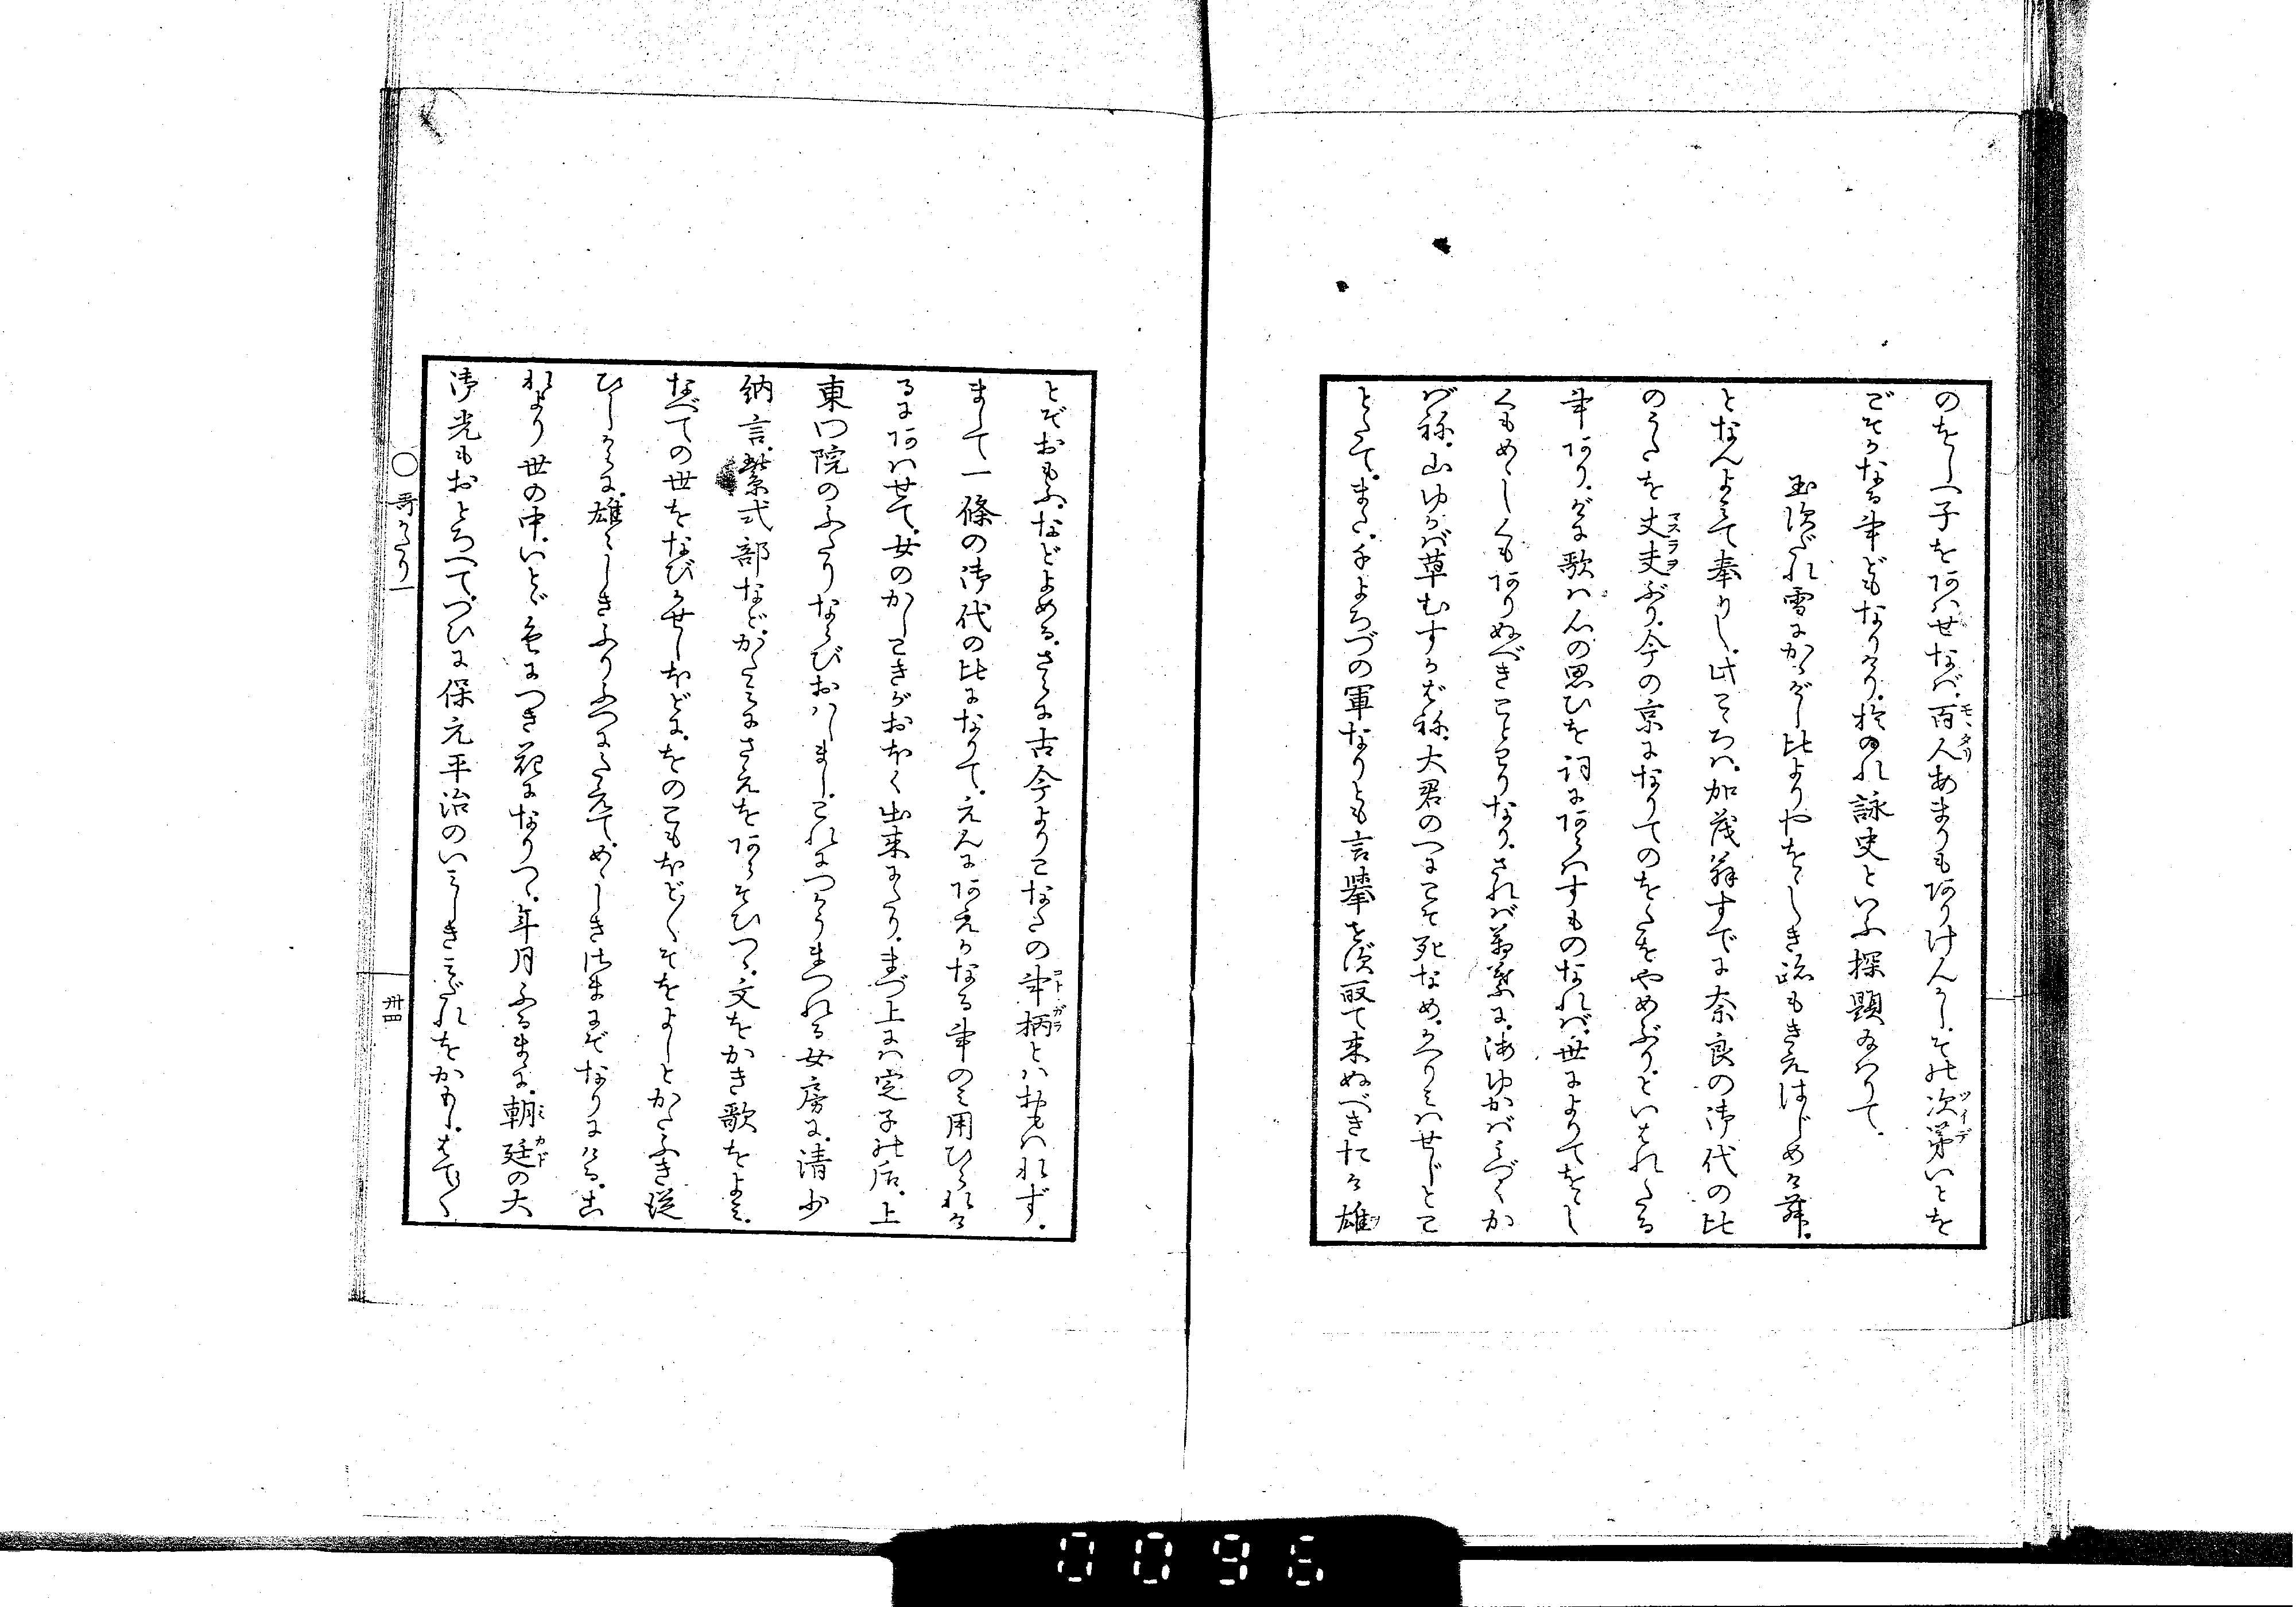 のをしへ子をあはせなば、百人あまりも有けんかし、その次第いとを
ごそかなる事どもなりけり、おのれ詠史といふ探題給はりて、
玉すだれ雪にかゝげし比よりやをゝしき跡もきえはじめけむ、
となんよみて奉りし、此こゝろは、加茂翁すでに奈良の御代の比
のうたを丈夫ぶり、今の京になりてのをたをやめぶり、といはれたる
事あり、げに歌は心の思ひを詞にあらはすものなれば、世によりてをゝし
くもめゝしくも有ぬべきことわりなり、されば万葉に、海ゆかばみづくか
ばね、山ゆかば草むすかばね、大君のへにこそ死なめ、かへりみはせじとこ
とだて、また、千よろづの軍なりとも言挙せず取て来ぬべきたけ雄
とぞおもふ、などよめる、さらに古今よりこなたの事柄とはおもはれず、
まして一條の御代の比になりて、えんにあえかなる事のみ用ひられけ
るにあはせて、女のかしこきがおほく出来にたり、まづ上には定子の后、上
東門院のふたりならびおはしまし、これにつかうまつれる女房に、清少
納言、紫式部など、かたみにさえをあらそひつゝ、文をかき歌をよみ、
なべての世をなびかせしほどに、をのこもほど〳〵それをよしとかたふき従
ひしからに、雄々しきふりふつにたえて、めゝしきさまにぞなりにける、こ
れより世の中、いとゞ色につき花になりつゝ、年月ふるまに、朝廷の大
御光もおとろへて、つひに保元平治のいみじきみだれをかもし、はて〳〵
モヽタリ
ツイデ
マスラヲ
コトガラ
ミカド
○哥かたり一
卅四
0096